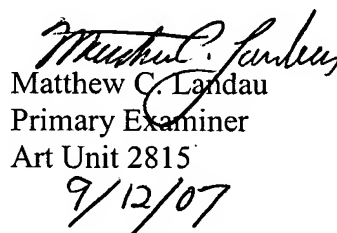 Matthew C. Landau
Matthew C. Landau
Primary Examiner
Art Unit 2815
9/12/07